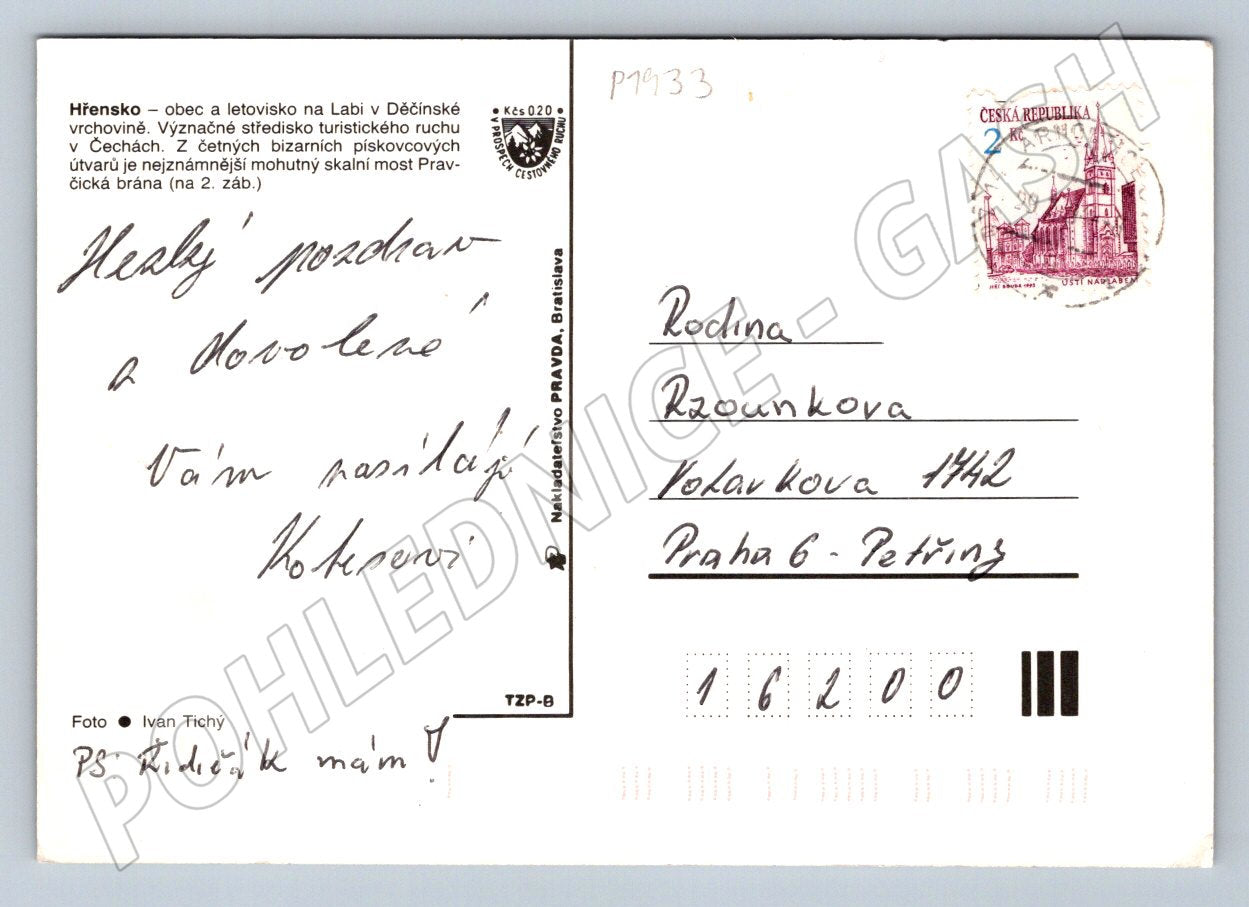 Hřensko – obec a letovisko na Labi v Děčínské
vrchovině. Význačné středisko turistického ruchu
v Čechách. Z četných bizarních pískovcových
útvarů je nejznámnější mohutný skalní most Prav-
čická brána (na 2. záb.)
• Kčs 020 •
V PROSPĚCH CESTOVNÉHO RUCHU
Hezký pozdrav
z dovolené
Vám nasílají
Kotesovi
Nakladateľstvo PRAVDA, Bratislava
TZP-8
Foto ● Ivan Tichý
PS: Řidičák mám!
P1933
ČESKÁ REPUBLIKA
2 Kč
JIŘÍ BOUDA 1993
ÚSTÍ NAD LABEM
Rodina
Rzounkova
Volavkova 1742
Praha 6 - Petřiny
1 6 2 0 0
POHLEDNICE - GASH